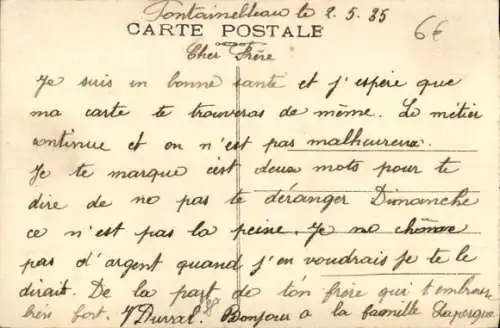 Fontainebleau le 2.5.35
6€
CARTE POSTALE
Cher Frère
Je suis en bonne santé et j'espère que
ma carte te trouveras de même. Le métier
continue et on n'est pas malheureux.
Je te marque c'est deux mots pour te
dire de no pas te déranger Dimanche
ce n'est pas la peine. Je no chôme
pas d'argent quand j'en voudrais je te le
dirait. De la part de ton frère qui t'embrasse
bien fort. Bonjour à la famille